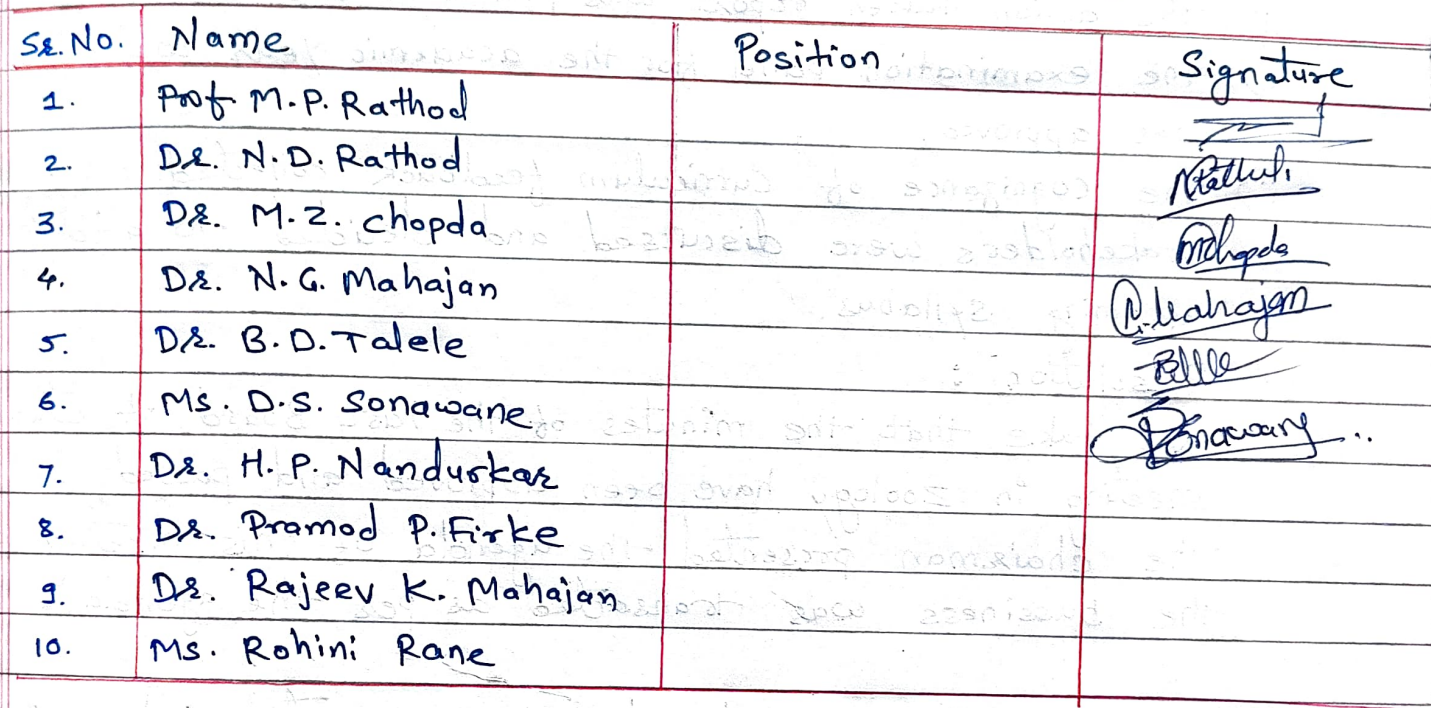 Sr. No. Name Position Signature
1. Prof M.P. Rathod
2. Dr. N.D. Rathod
3. Dr. M.Z. Chopda mzchopda
4. Dr. N.G. Mahajan Mahajan
5. Dr. B.D. Talele
6. Ms. D.S. Sonawane
7. Dr. H.P. Nandurkar
8. Dr. Pramod P. Firke
9. Dr. Rajeev K. Mahajan
10. Ms. Rohini Rane